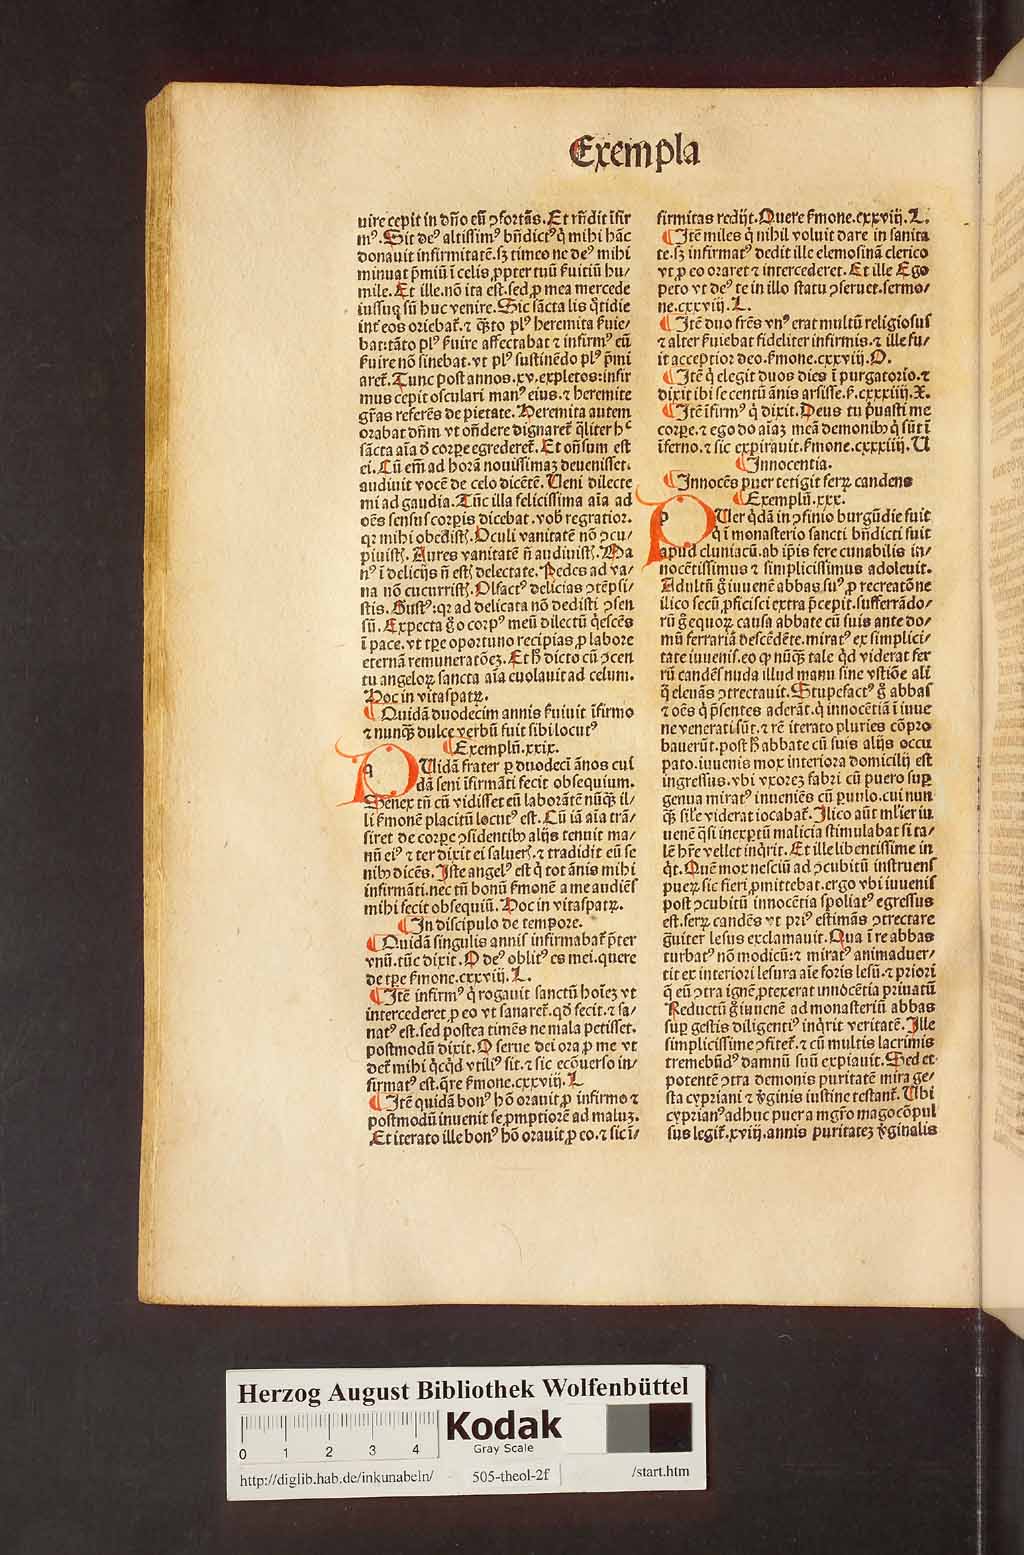 Exempla
uire cepit in dn̄o eū ↄfortās. Et rn̄dit īfir
mꝰ. Sit deꝰ altissimꝰ bn̄dictꝰ q̇ mihi hāc
donauit infirmitatē. sꝫ timeo ne deꝰ mihi
minuat p̄miū ī celis ꝓpter tuū ẜuitiū hu/
mile. Et ille. nō ita est. sed ꝓ mea mercede
iussuq; sū huc venire. Sic sācta lis q̄tidie
int̄ eos oriebat̄. ⁊ q̄ꝫto plꝰ heremita ẜuie/
bat: tāto plꝰ ẜuire affectabat ⁊ infirmꝰ eū
ẜuire nō sinebat. vt plꝰ sustinēdo plꝰ p̄mi
aret̄. Tunc post annos .xv. expletos: infir
mus cepit osculari manꝰ eius. ⁊ heremite
gr̄as referēs de pietate. Heremita autem
orabat dn̄m vt on̄dere dignaret̄ q̄liter hᶜ
sācta aīa ð corpe egrederet̄. Et on̄sum est
ei. Cū em̄ ad horā nouissimaꝫ deuenisset.
audiuit vocē de celo dicētē. Veni dilecte
mi ad gaudia. Tūc illa felicissima aīa ad
oēs sensus corpis dicebat. vob̄ regratior.
qꝛ mihi obedistꝭ. Oculi vanitatē nō ↄcu/
piuistꝭ. Aures vanitatē n̄ audiuistꝭ. Ma
nꝰ ī delicijs n̄ estꝭ delectate. Pedes ad va/
na nō cucurristꝭ. Olfactꝰ delicias ↄtēpsi/
stis. Gustꝰ: qꝛ ad delicata nō dedisti ↄsen
sū. Expecta g̊ o corpꝰ meū dilectū q̇escēs
ī pace. vt tꝑe oportuno recipias ꝓ labore
eternā remuneratōeꝫ. Et ħ dicto cū ↄcen
tu angeloꝝ sancta aīa euolauit ad celum.
Hoc in vitaspatꝝ.
¶ Quidā duodecim annis ẜuiuit īfirmo
⁊ nunqꝫ dulce verbū fuit sibi locutꝰ
¶ Exemplū .xxix.
q Uidā frater ꝑ duodecī ānos cuī
dā seni īfirmāti fecit obsequium.
Senex tn̄ cū vidisset eū laborātē nūqꝫ il/
li ẜmonē placitū locutꝰ est. Cū iā aīa trā/
siret de corpe ↄsidentibꝫ alijs tenuit ma/
nū eiꝰ ⁊ ter dixit ei salueꝭ. ⁊ tradidit eū se
nibꝫ dicēs. Iste angelꝰ est q̇ tot ānis mihi
infirmāti. nec tn̄ bonū ẜmonē a me audiēs
mihi fecit obsequiū. Hoc in vitaspatꝝ.
¶ In discipulo de tempore.
¶ Quidā singulis annis infirmabat̄ p̄ter
vnū. tūc dixit. O deꝰ oblitꝰ es mei. quere
de tꝑe ẜmone. cxxviij. L.
¶ Itē infirmꝰ q̇ rogauit sanctū hoīeꝫ vt
intercederet ꝓ eo vt sanaret̄. qð fecit. ⁊ sa/
natꝰ est. sed postea timēs ne mala petisset.
postmodū dixit. O serue dei ora ꝓ me vt
det̄ mihi q̇cq̇d vtiliꝰ sit. ⁊ sic ecōuerso in/
firmatꝰ est. q̄re ẜmone. cxxviij. L
¶ Itē quidā bonꝰ hō orauit ꝓ infirmo ⁊
postmodū inuenit se ꝓmptiorē ad maluꝫ.
Et iterato ille bonꝰ hō orauit ꝓ eo. ⁊ sic ī/
firmitas redijt. Quere ẜmone. cxxviij. L.
¶ Itē miles q̇ nihil voluit dare in sanita
te. sꝫ infirmatꝰ dedit ille elemosinā clerico
vt ꝓ eo oraret ⁊ intercederet. Et ille Ego
peto vt deꝰ te in illo statu ↄseruet. sermo/
ne. cxxviij. L.
¶ Itē duo fr̄es vnꝰ erat multū religiosus
⁊ alter ẜuiebat fideliter infirmis. ⁊ ille fu/
it acceptior deo. ẜmone. cxxviij. O.
¶ Itē q̇ elegit duos dies ī purgatorio. ⁊
dixit ibi se centū ānis arsisse. ẜ. cxxxiiij. X.
¶ Itē īfirmꝰ q̇ dixit. Deus tu p̄uasti me
corpe. ⁊ ego do aīaꝫ meā demonibꝫ q̇ sūt ī
īferno. ⁊ sic expirauit. ẜmone. cxxxiiij. U
¶ Innocentia.
¶ Innocēs puer tetigit ferꝝ candens
¶ Exemplū .xxx.
p Uer q̇dā in ↄfinio burgūdie fuit
q̇ ī monasterio sancti bn̄dicti fuit
apud cluniacū. ab ip̄is fere cunabilis in/
nocētissimus ⁊ simplicissimus adoleuit.
Adultū g̊ iuuenē abbas suꝰ ꝓ recreatōne
ilico secū ꝓficisci extra p̄cepit. sufferrādo/
rū g̊ equoꝝ causa abbate cū suis ante do/
mū ferrariā descēdēte. miratꝰ ex simplici/
tate iuuenis. eo ꝙ nūqꝫ tale q̇d viderat fer
rū candēs nuda illud manu sine vstiōe ali
q̄ eleuās ↄtrectauit. Stupefactꝰ g̊ abbas
⁊ oēs q̇ p̄sentes aderāt. q̇ innocētiā ī iuue
ne venerati sūt. ⁊ rē iterato pluries cōpro
bauerūt. post ħ abbate cū suis alijs occu
pato. iuuenis mox interiora domicilij est
ingressus. vbi vxoreꝫ fabri cū puero suꝑ
genua miratꝰ inueniēs cū paruulo. cui nun
qꝫ sil̄e viderat iocabat̄. Ilico aūt ml̓ier iu
uenē q̄si inexptū malicia stimulabat si ta/
lē hr̄e vellet inq̇rit. Et ille libentissime in
q̇t. Quē mox nesciū ad ↄcubitū instruens
pueꝝ sic fieri ꝓmittebat. ergo vbi iuuenis
post ↄcubitū innocētia spoliatꝰ egressus
est. ferꝝ candēs vt priꝰ estimās ↄtrectare
grauiter lesus exclamauit. Qua ī re abbas
turbatꝰ nō modicū: ⁊ miratꝰ animaduer/
tit ex interiori lesura aīe foris lesū. ⁊ priori
q̄ eū ↄtra ignē ꝓtexerat innocētia priuatū
Reductū g̊ iuuenē ad monasteriū abbas
suꝑ gestis diligentiꝰ inq̇rit veritatē. Ille
simplicissime ↄfitet̄. ⁊ cū multis lacrimis
tremebūdꝰ damnū suū expiauit. Sed et
potentē ↄtra demonis puritatē mira ge/
sta cypriani ⁊ v̓ginis iustine testant̄. Ubi
cyprianꝰ adhuc puer a mgr̄o mago cōpul
sus legit̄. xviij. annis puritateꝫ v̓ginalis
Herzog August Bibliothek Wolfenbüttel
0 1 2 3 4
Kodak
Gray Scale
http://diglib.hab.de/inkunabeln/ 505-theol-2f /start.htm